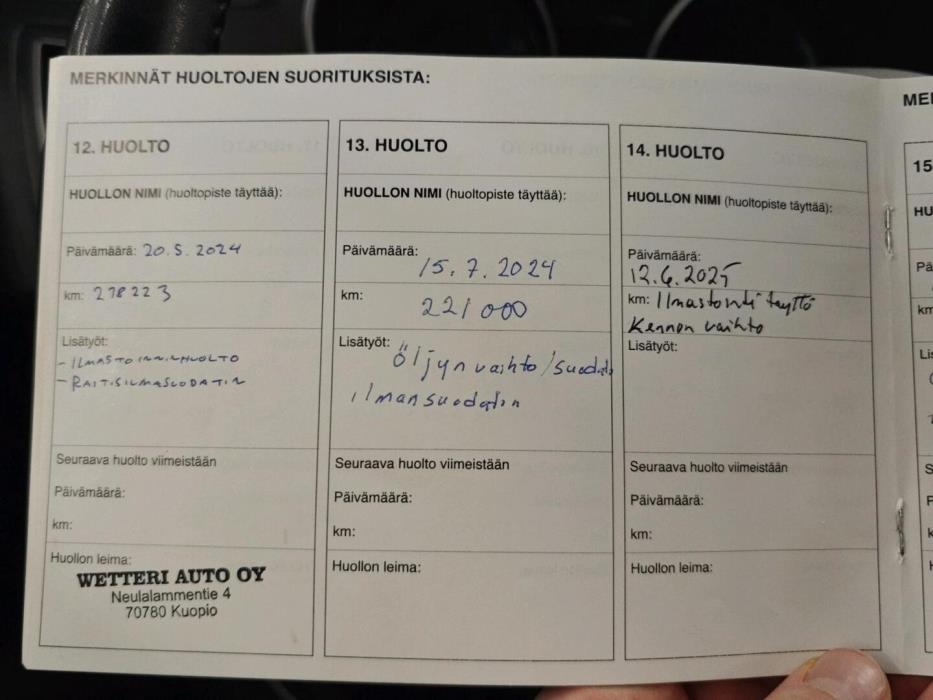 MERKINNÄT HUOLTOJEN SUORITUKSISTA:
12. HUOLTO
HUOLLON NIMI (huoltopiste täyttää):
Päivämäärä: 20.5.2024
km: 218223
Lisätyöt:
- ILMASTOINNINHUOLTO
- RAITISILMASUODATIN
Seuraava huolto viimeistään
Päivämäärä:
km:
Huollon leima:
WETTERI AUTO OY
Neulalammentie 4
70780 Kuopio
13. HUOLTO
HUOLLON NIMI (huoltopiste täyttää):
Päivämäärä:
15.7.2024
km:
221 000
Lisätyöt: Öljyn vaihto/suodatin
ilmansuodatin
Seuraava huolto viimeistään
Päivämäärä:
km:
Huollon leima:
14. HUOLTO
HUOLLON NIMI (huoltopiste täyttää):
Päivämäärä:
12.6.2025
km: Ilmastointi täyttö
Kennon vaihto
Lisätyöt:
Seuraava huolto viimeistään
Päivämäärä:
km:
Huollon leima:
MER
15
HU
Pä
km
Lis
S
P
k
H